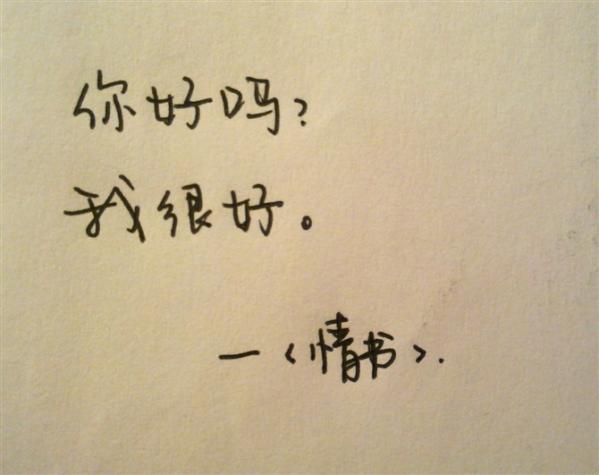 你好吗?
我很好。
一<情书>.